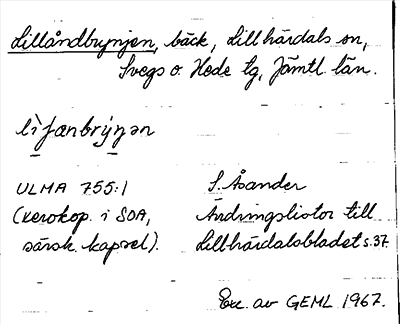 Lillåndbrynjen, bäck, Lillhärdals sn,
Svegs o. Hede tg, Jämtl. län.
lìʃænbrýŋən
ULMA 755:1 S. Åsander
(xerokop. i SOA, Ändringslistor till
särsk. kapsel). Lillhärdalsbladet s. 37.
Exc. av GEML 1967.